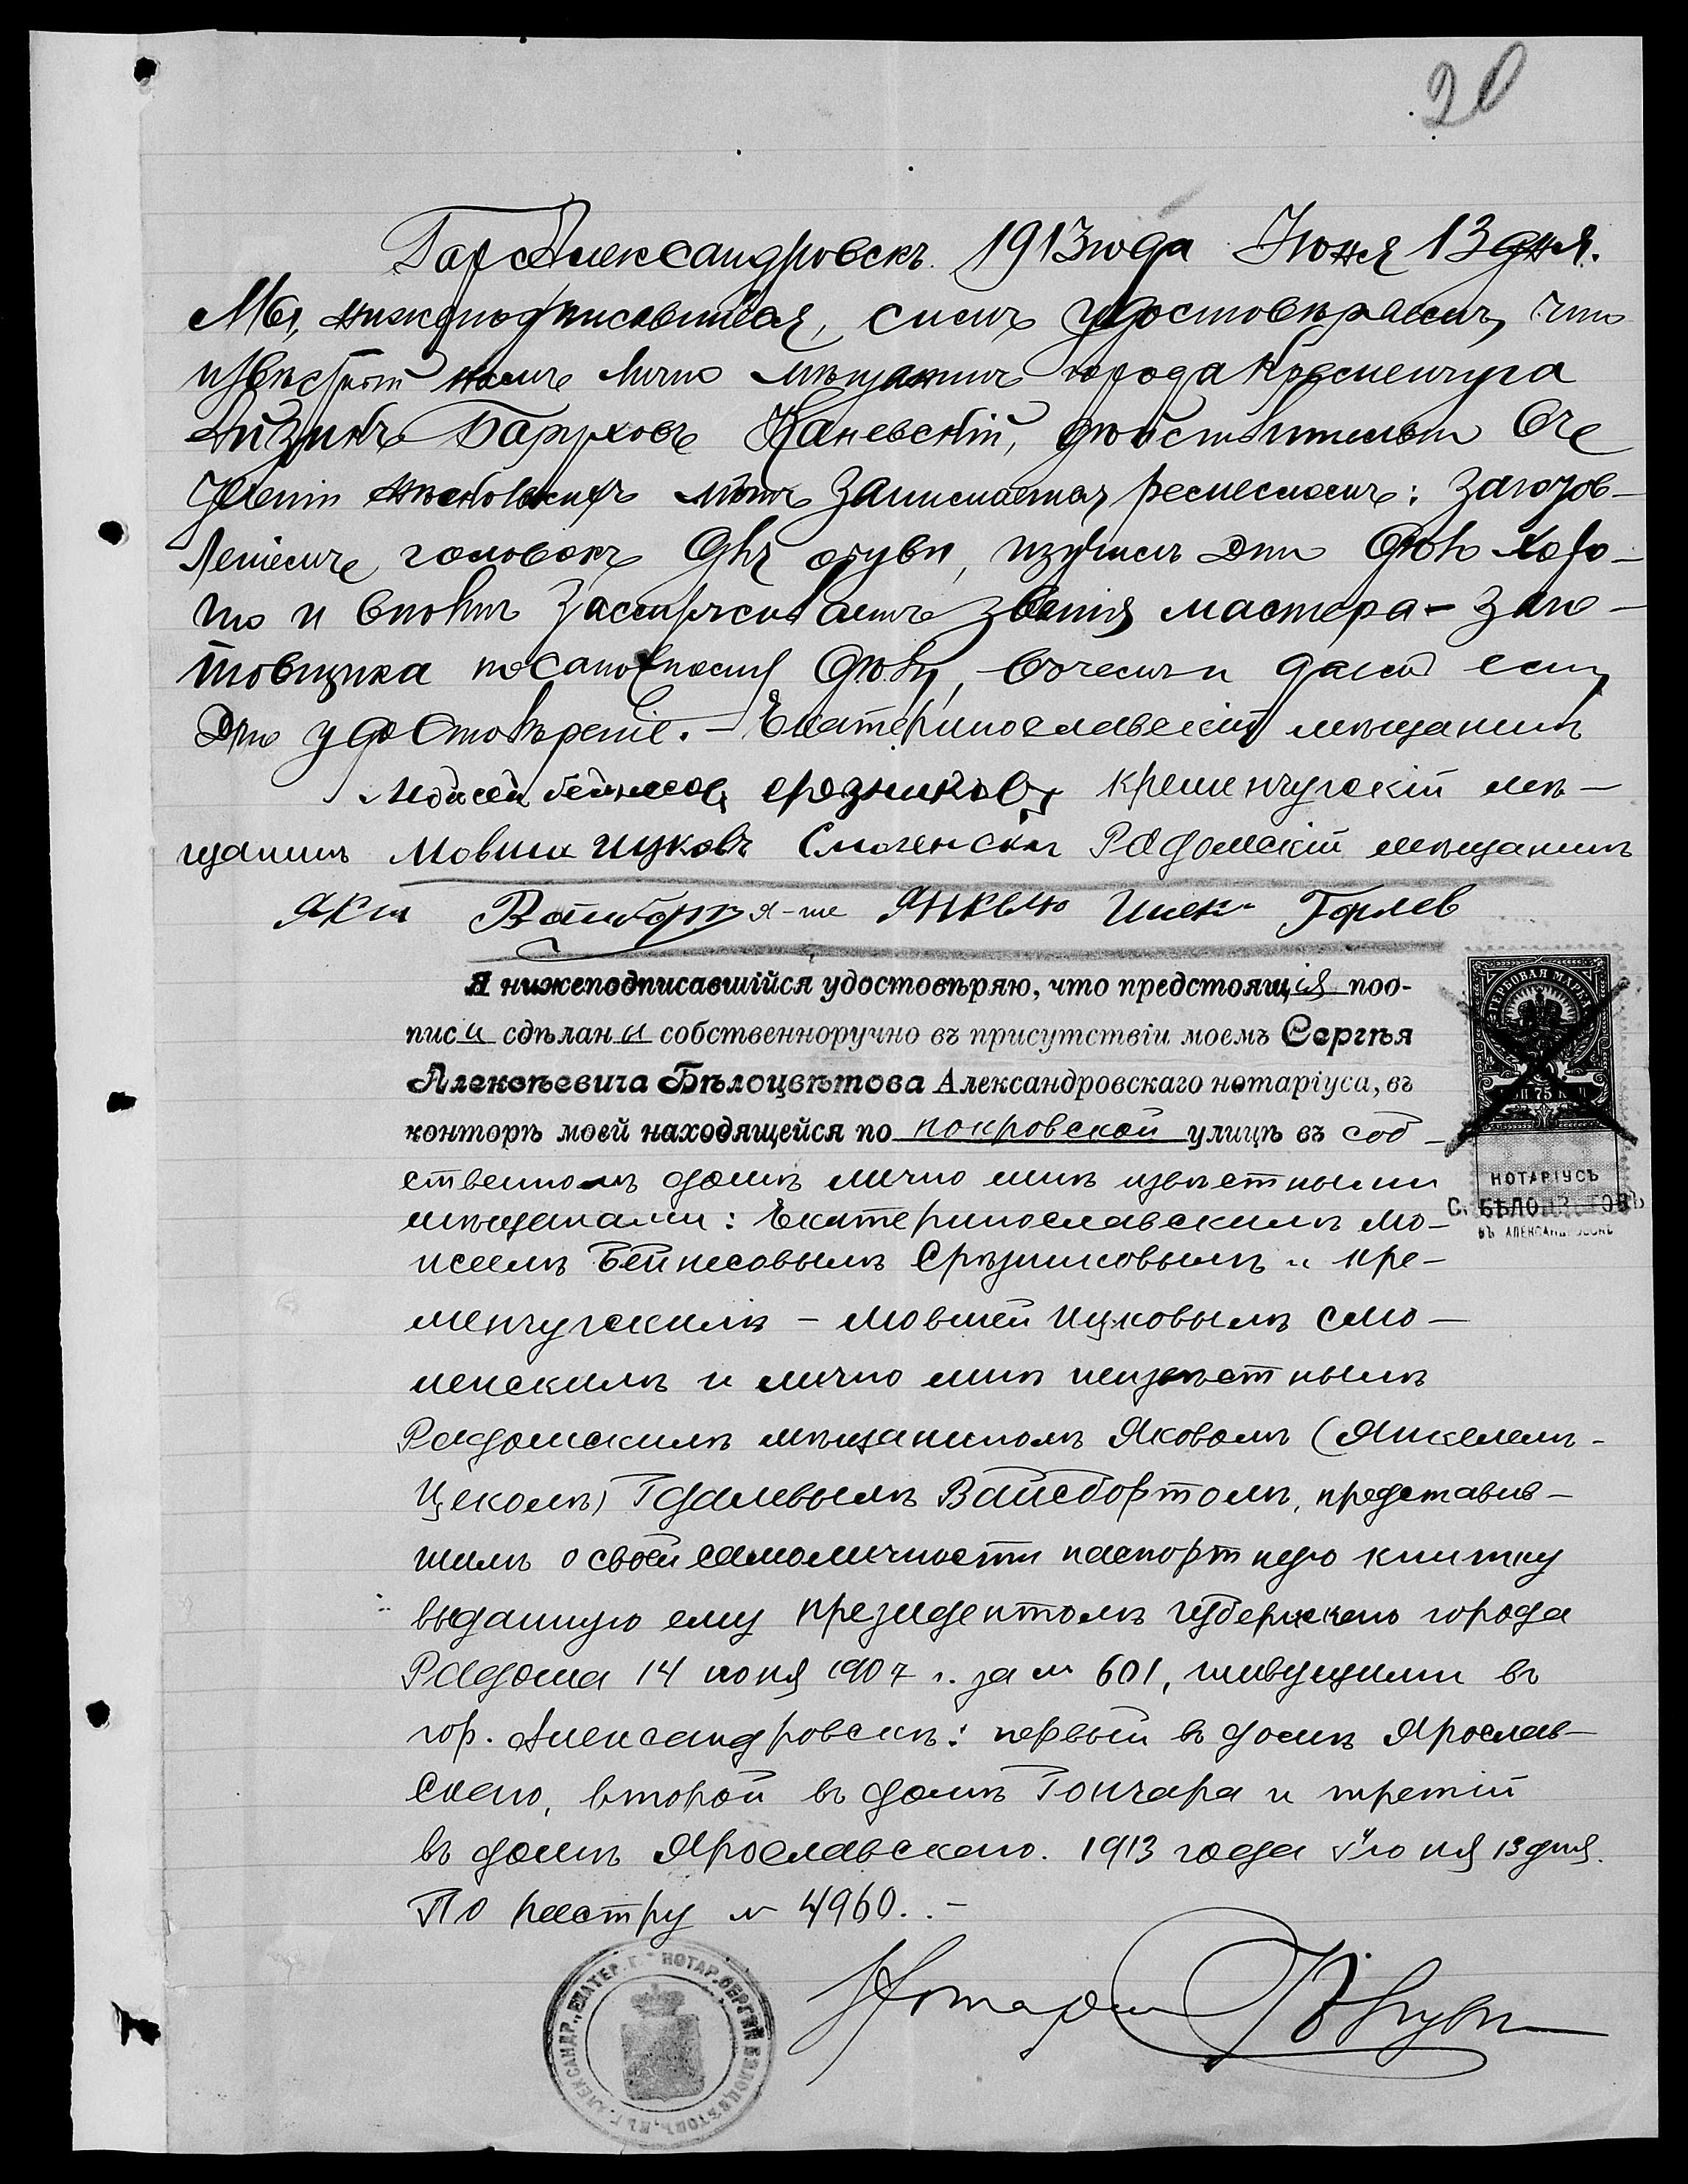 20
Гор. Александровскъ. 1913 года Июня 13 дня.
Мы, нижеподписавшiеся, симъ удостовѣряемъ, что
извѣстный намъ лично мѣщанинъ города Кременчуга
Айзикъ Баруховъ Каневскій, дѣйствительно въ
теченіи нѣсколькихъ лѣтъ занимается ремесломъ: заготов-
леніемъ головокъ для обуви, изучилъ это дѣло хоро-
шо и вполнѣ заслуживаетъ званія мастера - заго-
товщика по сапожному дѣлу, въ чемъ и даемъ ему
это удостовѣреніе. - Екатеринославскій мѣщанинъ
Мойсей Бейнесовъ Срезниковъ Кременчугскій мѣ-
щанинъ Мовша Ицковъ Смоленскій Радомскій мѣщанинъ
Вайсбортъ Янкель
Я нижеподписавшійся удостовѣряю, что предстоящія под-
писи сдѣланы собственноручно въ присутствіи моемъ Сергѣя
Алексѣевича Бѣлоцвѣтова Александровскаго нотаріуса, въ
конторѣ моей находящейся по Покровской улицѣ въ соб-
ственномъ домѣ лично мнѣ извѣстными
мѣщанами: Екатеринославскимъ Мо-
исеемъ Бейнесовымъ Срѣзниковымъ и Кре-
менчугскимъ - Мовшей Ицковымъ Смо-
ленскимъ и лично мнѣ неизвѣстнымъ
Радомскимъ мѣщаниномъ Яковомъ (Янкелемъ-
Цекомъ) Гдалевымъ Вайсбортомъ, представив-
шимъ о своей самоличности паспортную книжку
выданную ему президентомъ губернскаго города
Радома 14 июня 1907 г. за № 601, живущими въ
гор. Александровскѣ: первый въ домѣ Ярослав-
скаго, второй въ домѣ Гончара и третій
въ домѣ Ярославскаго. 1913 года Июня 13 дня.
По реестру № 4960. -
Нотаріусъ
ГЕРБОВАЯ МАРКА
75 КОП
НОТАРІУСЪ
С. БѢЛОЦВѢТОВЪ
ВЪ АЛЕКСАНДРОВСКѢ
НОТАР. СЕРГѢЙ БѢЛОЦВѢТОВЪ, ВЪ Г. АЛЕКСАНДР., ЕКАТЕР. Г.